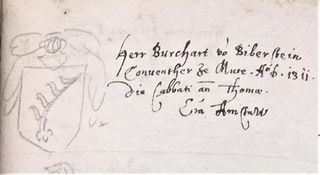 Herr Burchart vō Biberstein
Conventher ze Mure. Aō. 1311.
Die Sabbati añ Thomæ.